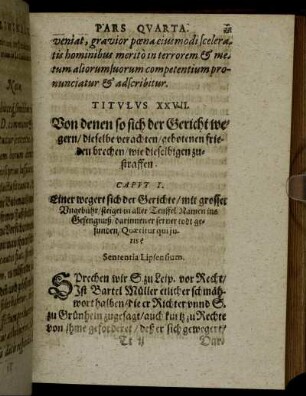 PARS QVARTA.
veniat, gravior pœna eiusmodi scelera-
tis hominibus merito in terrorem & me-
tum aliorum suorum competentium pro-
nunciatur & adscribitur.
TITVLVS XXVII.
Von denen so sich der Gericht we-
gern/ dieselbe verachten/ gebotenen frie-
den brechen/ wie dieselbigen zu-
straffen.
CAPVT I.
Einer wegert sich der Gerichte/ mit grosser
Vngebühr/ steiget in aller Teuffel Namen ins
Gefengnuß, darinnen er ferner todt ge-
funden, Quæritur qui ju-
ris?
Sententia Lipsensium.
Sprechen wir S. zu Leip. vor Recht/
Ist Bartel Müller etlicher sch mäh-
wort halben/ die er Richter vnnd S.
zu Grünhein zugefagt/ auch kurtz zu Rechte
von ihme gefordert/ deß er sich gewegert/
Tt ij
Dar-